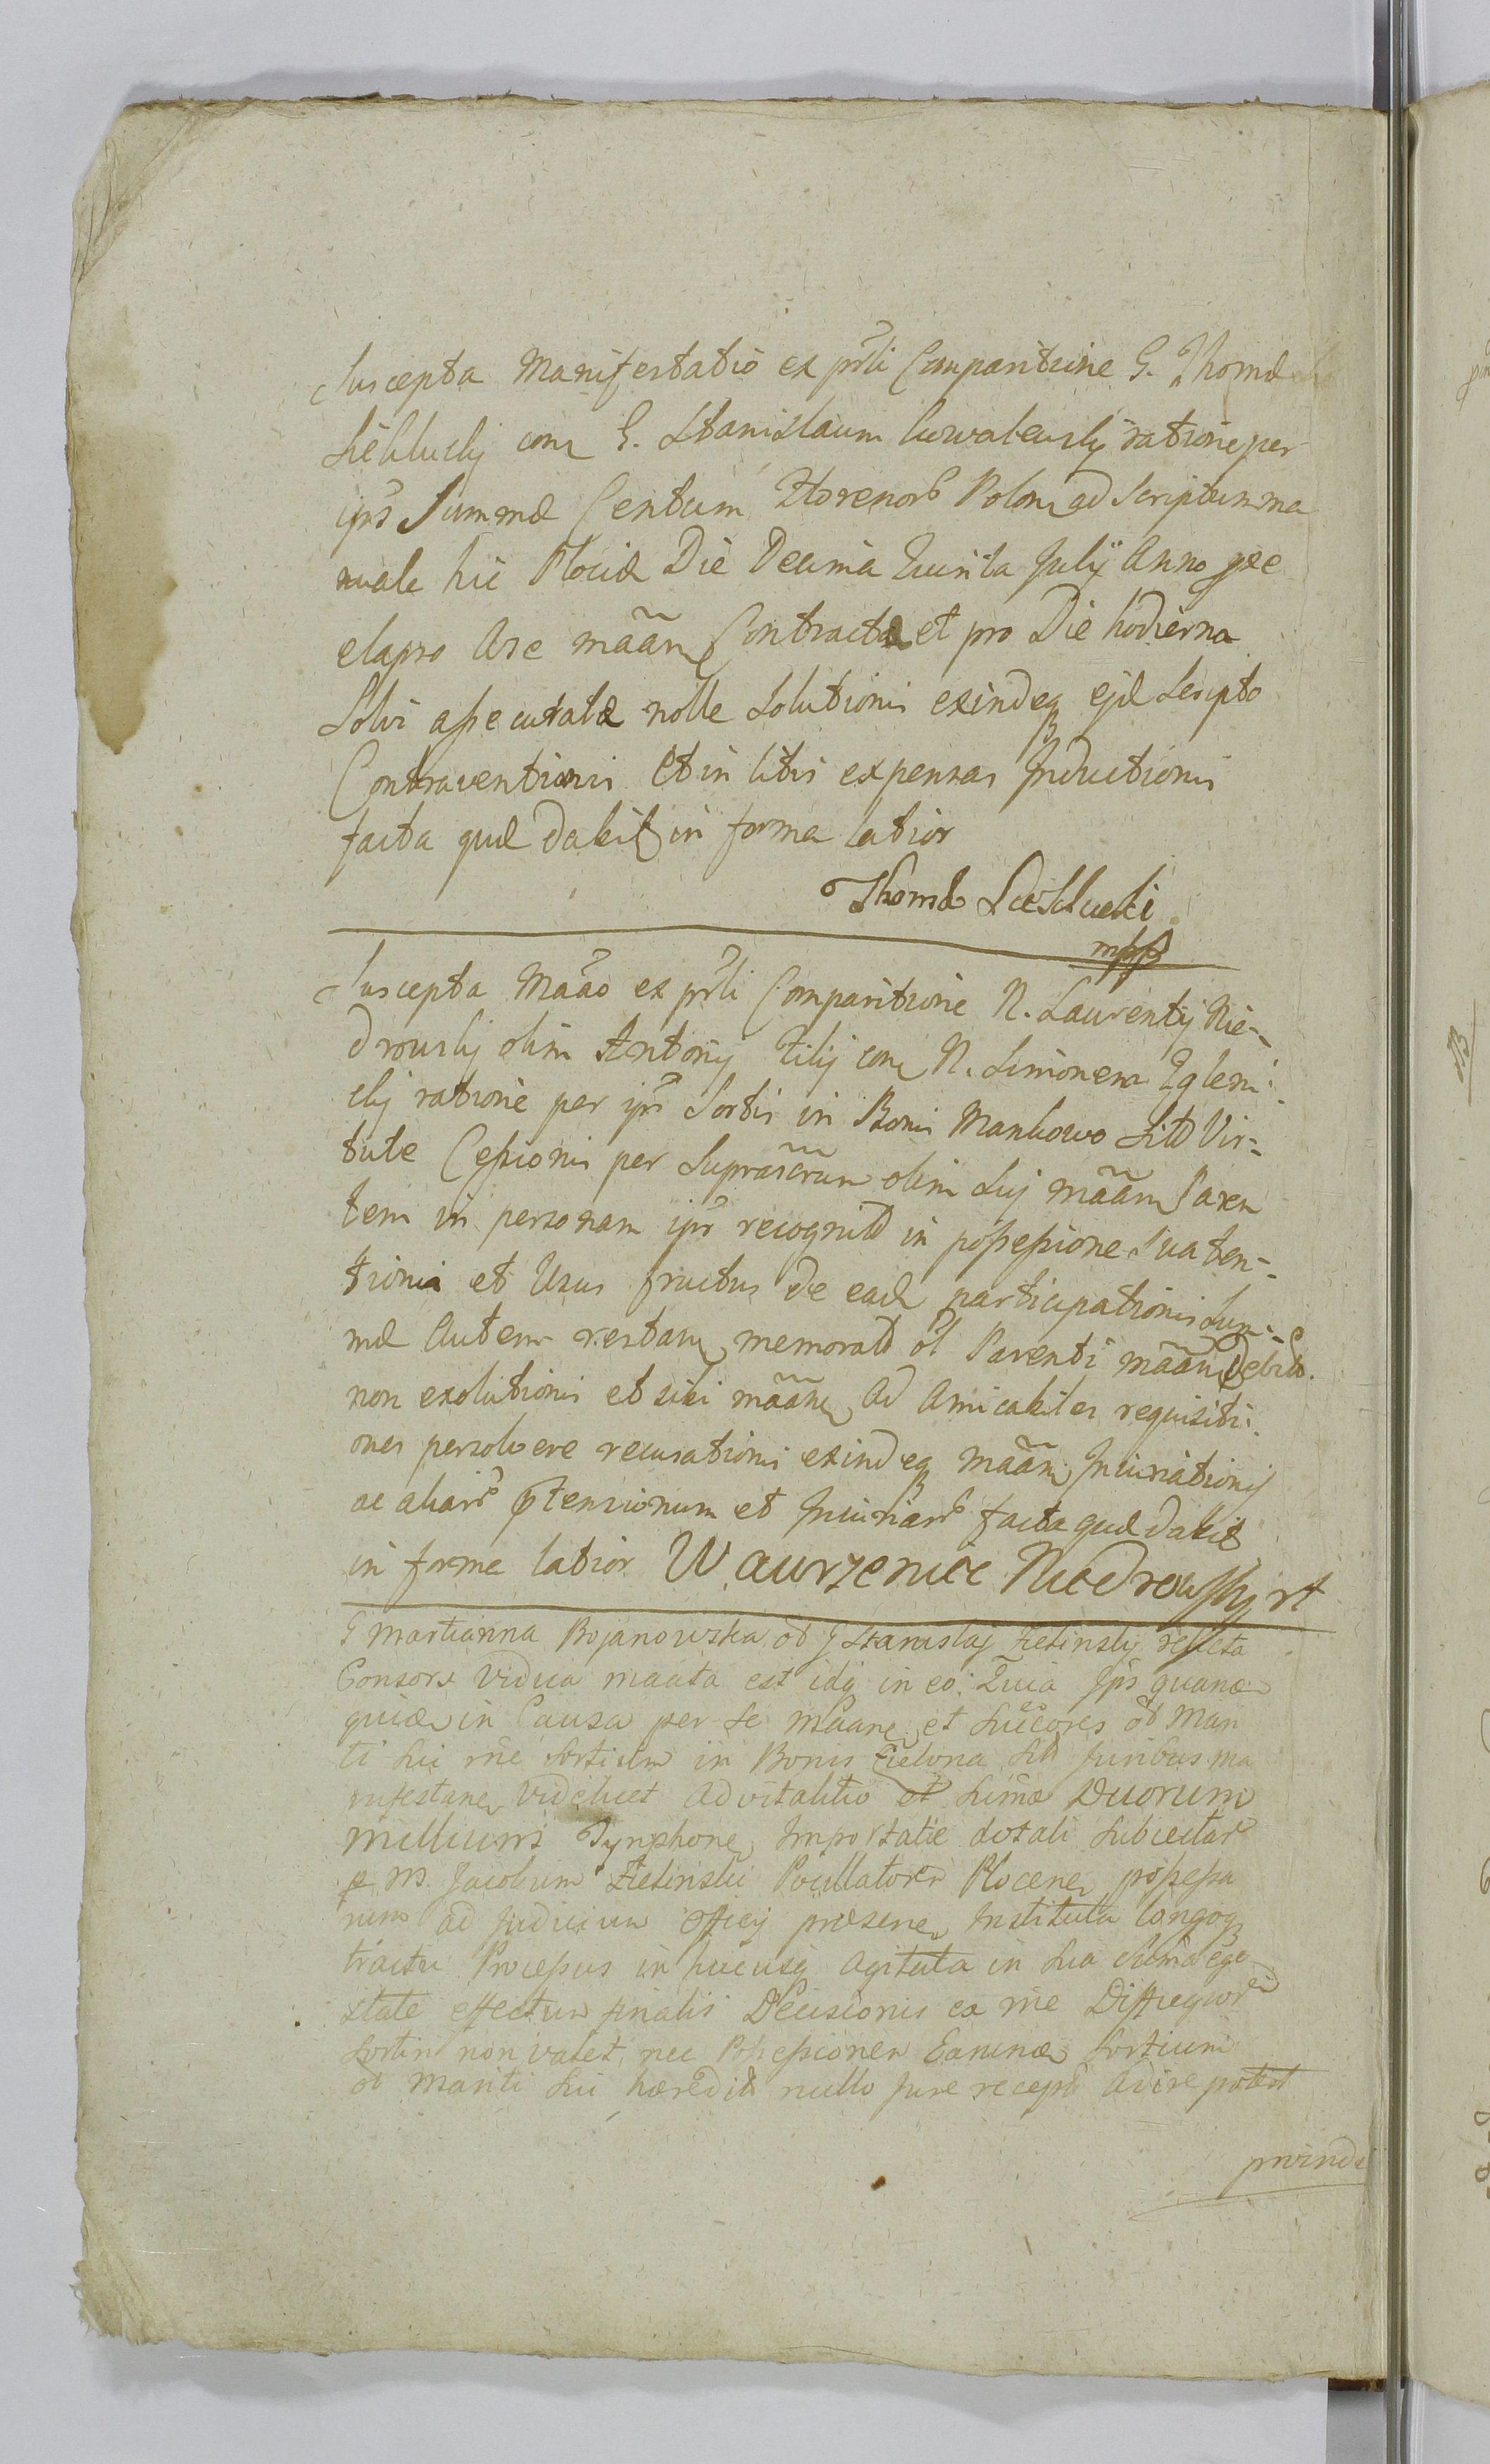 Suscepta Manifestatio ex prli Comparitione G. Thomæ
con G. Stanislaum ratione per
ips Summæ Centum Florenor Polon ad Scriptum ma
nuale hic Plociæ Die Decima Quinta Julij Anno pre
elapso A se mããn Contractæ et pro Die hodierna
Solvi assecuratæ nolle Solutionis exindeq ejd Scripto
Contraventionis Et in litis expensas Inductionis
facta quæ dabit in forma latior
Thomæ
mpp
Suscepta Mãão ex prli Comparitione N. Laurentij Nie-
drouskj olim Antonij Filij con N. Simonem
ratione per ips Sortis in Bonis Mankowo Sitæ Vir-
tute Cessionis per Suprascrum olim Sui mããn Paren
tem in personam ips recognitæ in possessione Sua ten-
tionis et Usus fructus de ead participationis Sum-
mæ Autem restan memorato ol Parenti mããn debitæ
non exolutionis et sibi mããn ad Amicabiles requisiti
ones persolvere recusationis exindeq mããn Injuriationis
ac aliar ptensionum et Injuriar facta quæ dabit
in forma latior Wawrzeniec Niedrouskj rt
G Marianna Bojanowska ol G Stanislaj Zielinskj relicta
Consors Vidua maata est idq in eo: Quia Ips quanæ
quidem in Causa per se Maane et Succores ol Mari
ti sui rne Sortium in Bonis Zielona Sit Juribus ma
nifestane videlicet advitalitio et Sumæ Duorum
millium Tynphone Importatæ dotali Subiectar
p M. Jacobum Zielinski Pocillatorem Plocene possessa
rum ad Judicium Officij præsene Instituta longoq
tractu Processus in hucusq Agitata in Sua Suma ege
state effectum finalis Decisionis ex rne
Sortiri non valet, nec Possessionem Sortium
ol Mariti Sui nullo Jure recepta Adire potest
proinde